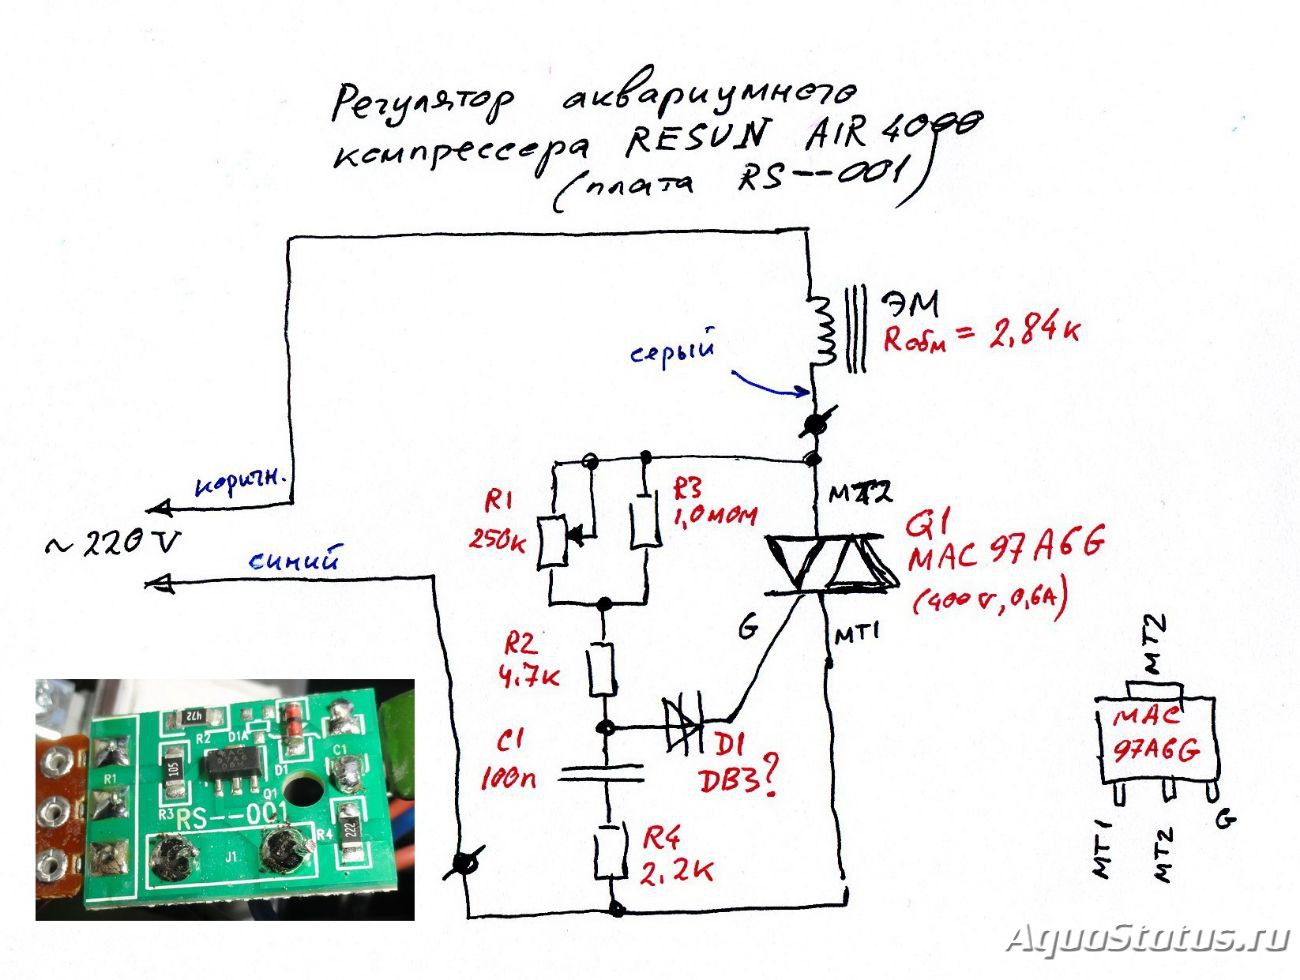 Регулятор аквариумного
компрессора RESUN AIR 4000
(плата RS--001)
ЭМ
Rобм = 2,84к
серый
коричн.
~220V
синий
R1
250к
R3
1,0мом
MT2
Q1
MAC 97A6G
(400v, 0,6A)
G
MT1
R2
4,7к
C1
100п
D1
DB3?
R4
2,2к
MT2
MAC
97A6G
MT1
MT2
G
472
R2
D1A
R1
105
D1
C1
Q1
R3
RS--001
R4
222
J1
AquaStatus.ru